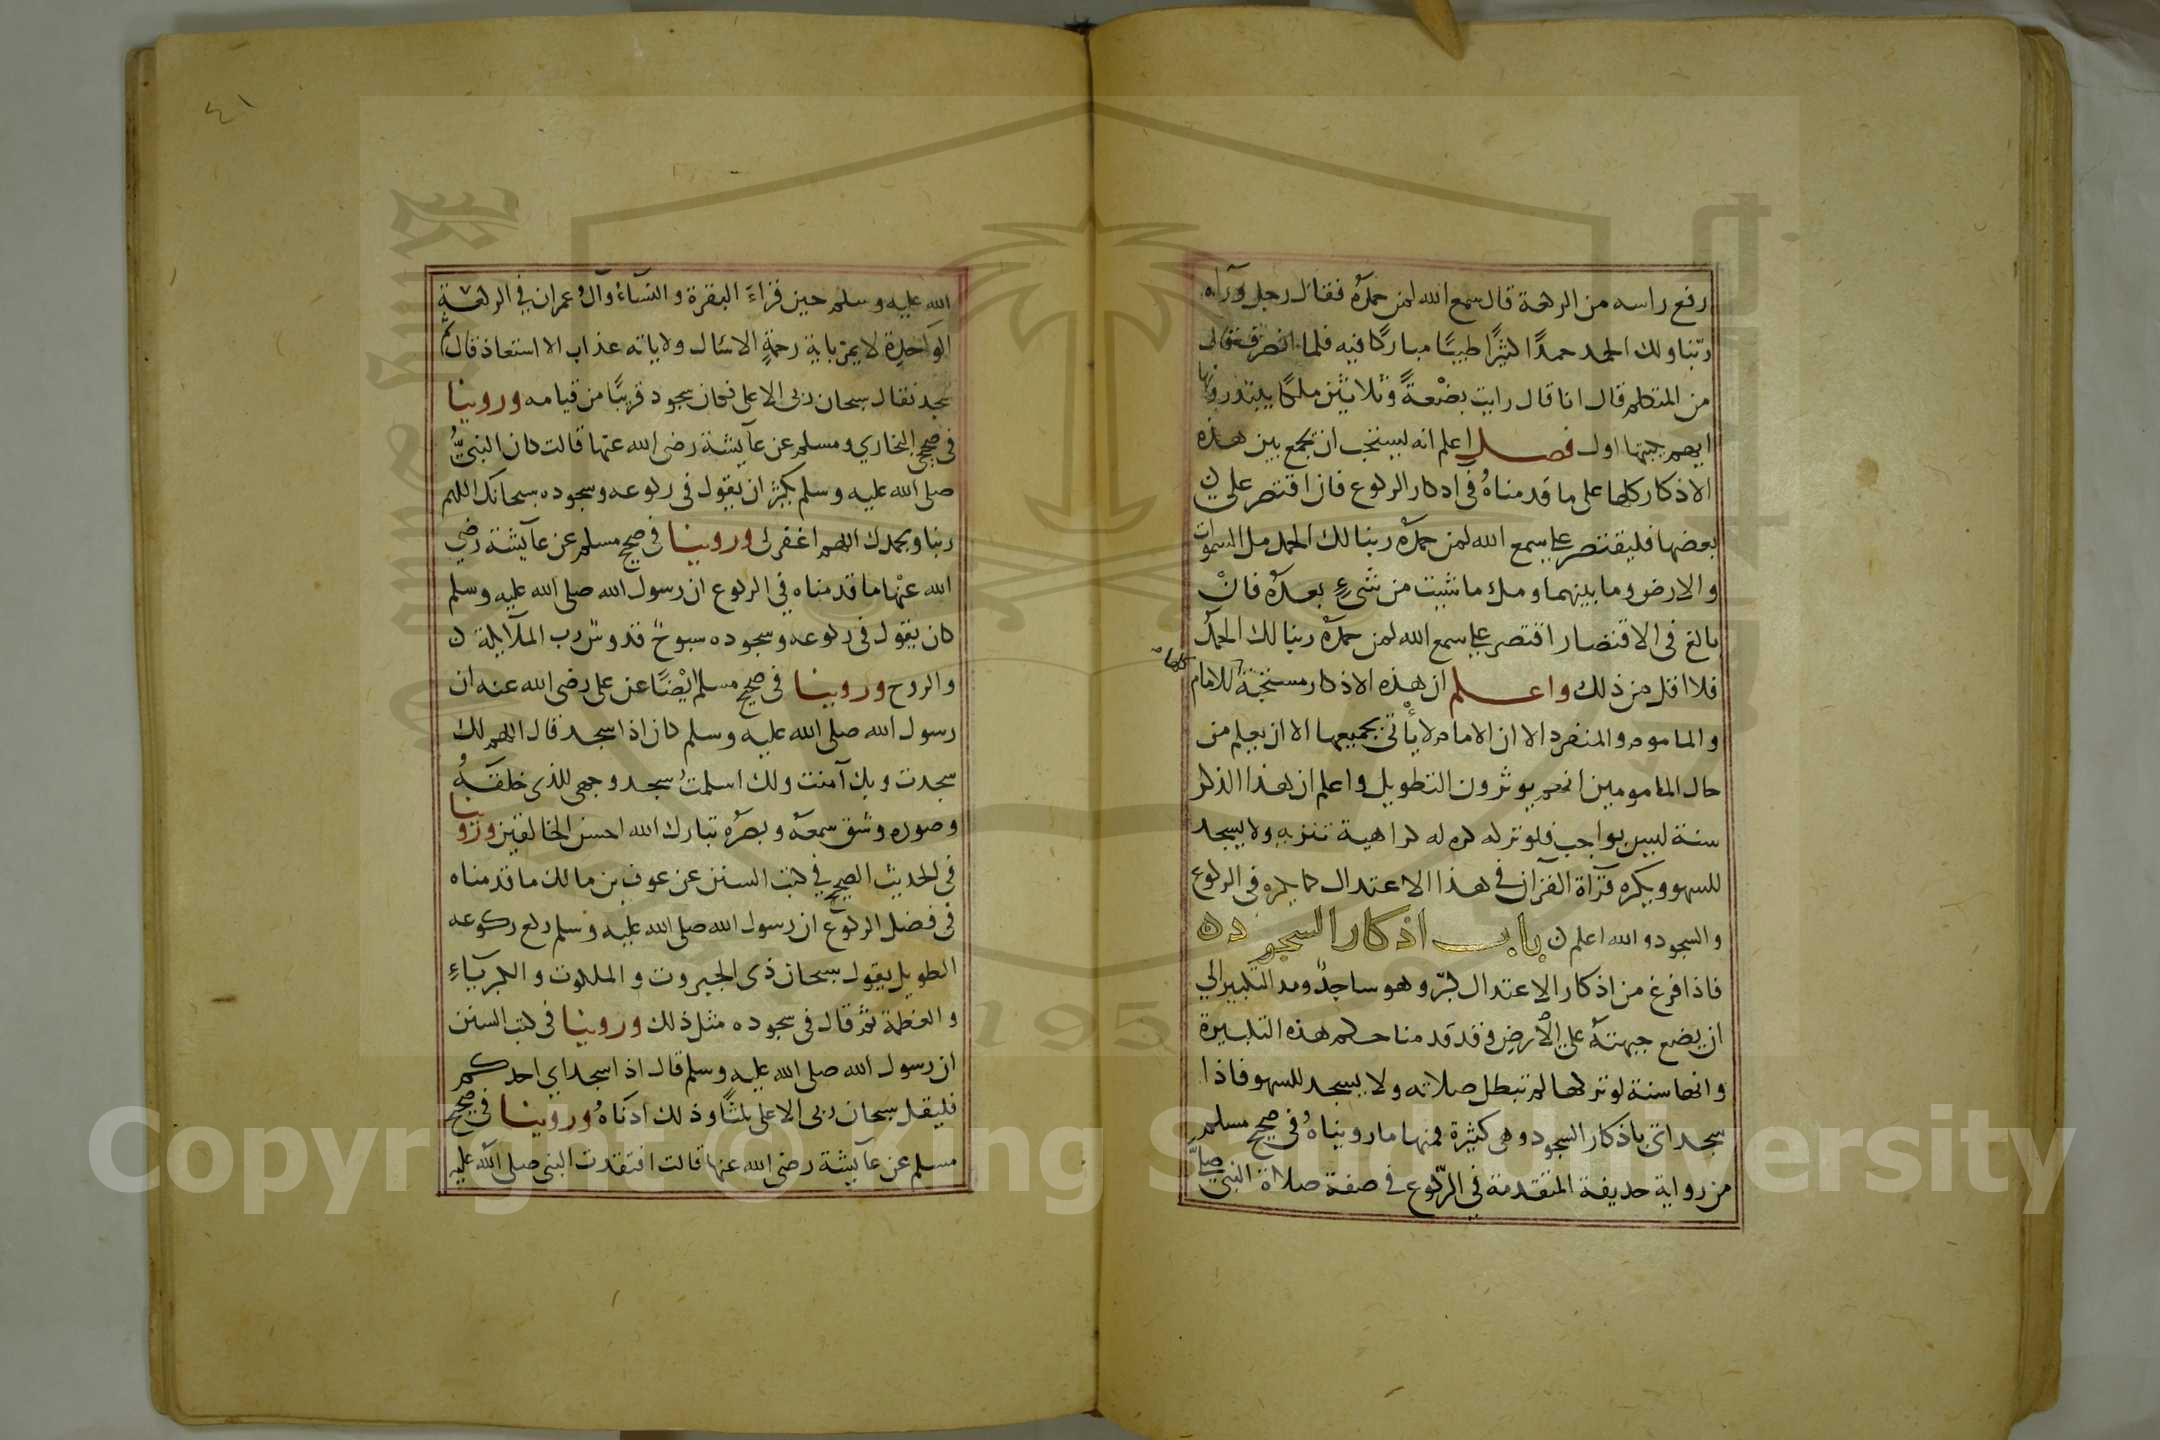 رفع راسه من الركعة قال سمع الله لمن حمده فقال رجل وراه
ربّنا ولك الحمد حمدًا كثيرًا طيبًا مباركًا فيه فلما انصرف قال
من المتكلم قال انا قال رايت بضعةً وثلاثين ملكًا يبتدرونها
ايهم يكتبها اول فصل اعلم انه يستحب ان يجمع بين هذه
الاذكار كلها على ما قدمناهُ في اذكار الركوع فان اقتصر على
بعضها فليقتصر على سمع الله لمن حمده ربنا لك الحمد مل السموات
والارض وما بينهما ومل ما شيت من شيءٍ بعده فانْ
بالغ في الاقتصار اقتصر على سمع الله لمن حمده ربنا لك الحمد
فلا اقل من ذلك واعلم ان هذه الاذكار مستحبة كلها للامام
والماموم والمنفرد الا ان الامام لا يأتي بجميعها الا ان يعلم من
حال المامومين انهم يوثرون التطويل واعلم ان هذا الذكر
سنة ليس بواجب فلو تركه كره له كراهية تنزيه ولا يسجد
للسهو ويكره قرآة القرآن في هذا الاعتدال كما يكره في الركوع
والسجود والله اعلم ن باب اذكار السجود ه ن
فاذا فرغ من اذكار الاعتدال كبّر وهو ساجدٌ ومد التكبير الي
ان يضع جبهته على الارض وقد قدمنا حكم هذه التكبيرة
وانها سنة لو تركها لم تبطل صلاته ولا يسجد للسهو فاذا
سجد اتى باذكار السجود وهى كثيرة فمنها ما رويناهُ في صحيح مسلم
من رواية حذيفة المتقدمة في الركوع في صفة صلاة النبي صلى
٤١
الله عليه وسلم حين قراءَ البقرة والنسآءُ وآل عمران في الركعة
الواحدة لا يمر باية رحمةٍ الا سال ولا باية عذاب الا استعاذ قال ثم
سجد فقال سبحان ربى الاعلى فكان سجوده قريبًا من قيامه وروينا
في صحيحى البخاري ومسلم عن عآيشة رضى الله عنها قالت كان النبىُّ
صلى الله عليه وسلم يكثر ان يقول في ركوعه وسجوده سبحانك اللهم
ربنا وبحمدك اللهم اغفرلى وروينا في صحيح مسلم عن عآيشة رضي
الله عنْها ما قدمناه في الركوع ان رسول الله صلى الله عليه وسلم
كان يقول في ركوعه وسجوده سبوحٌ قدوسٌ رب الملآيكة ن
والروح وروينا في صحيح مسلم ايْضًا عن على رضى الله عنه ان
رسول الله صلى الله عليه وسلم كان اذا سجد قال اللهم لك
سجدت وبك آمنت ولك اسلمتُ سجد وجهى للذى خلقهُ
وصوره وشق سمعه وبصره تبارك الله احسن الخالقين وروينا
في الحديث الصحيح في كتب السنن عن عوف بن مالك ما قدمناه
في فضل الركوع ان رسول الله صلى الله عليه وسلم ركع ركوعه
الطويل يقول سبحان ذى الجبروت والملكوت والكبرياءِ
والعظمة ثم قال في سجوده مثل ذلك وروينا في كتب السنن
ان رسول الله صلى الله عليه وسلم قال اذا سجد اي احدكم
فليقل سبحان ربى الاعلى ثلثًا وذلك ادناهُ وروينا في صحيح
مسلم عن عآيشة رضى الله عنها قالت افتقدت النبى صلى الله عليه
Copyright © King Saud University
1957